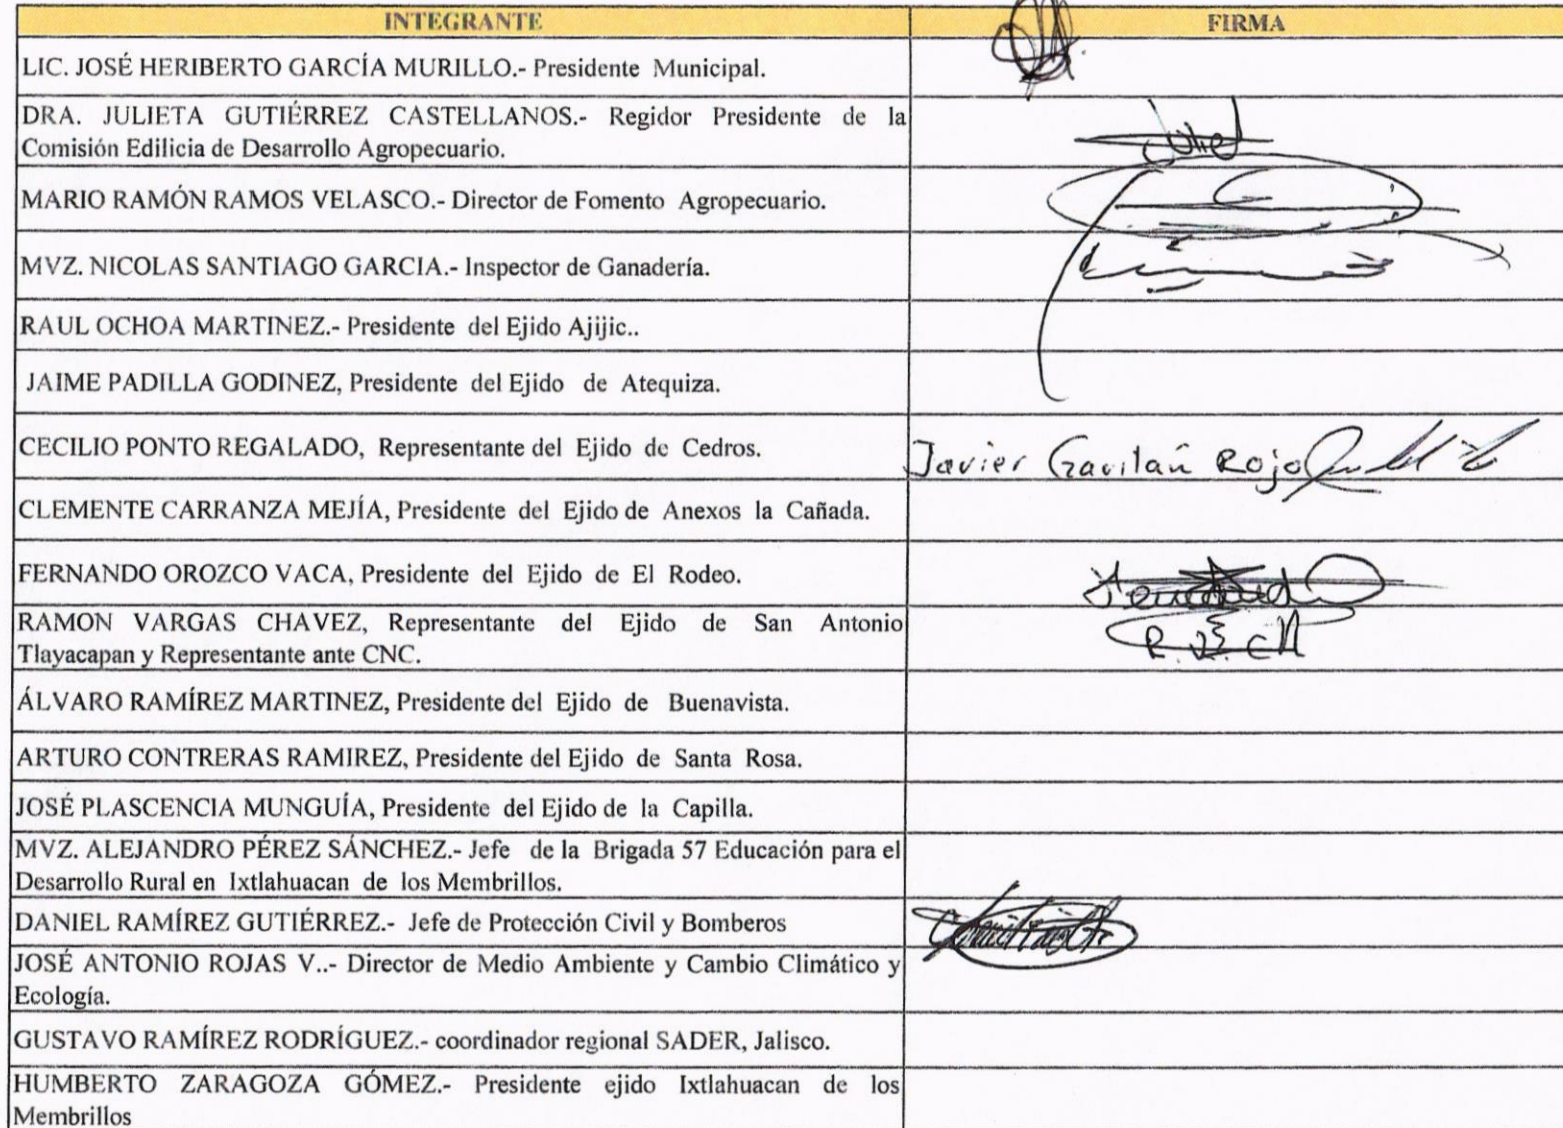 INTEGRANTE FIRMA
LIC. JOSÉ HERIBERTO GARCÍA MURILLO.- Presidente Municipal.
DRA. JULIETA GUTIÉRREZ CASTELLANOS.- Regidor Presidente de la
Comisión Edilicia de Desarrollo Agropecuario.
MARIO RAMÓN RAMOS VELASCO.- Director de Fomento Agropecuario.
MVZ. NICOLAS SANTIAGO GARCIA.- Inspector de Ganadería.
RAUL OCHOA MARTINEZ.- Presidente del Ejido Ajijic..
JAIME PADILLA GODINEZ, Presidente del Ejido de Atequiza.
CECILIO PONTO REGALADO, Representante del Ejido de Cedros. Javier Gavilan Rojo
CLEMENTE CARRANZA MEJÍA, Presidente del Ejido de Anexos la Cañada.
FERNANDO OROZCO VACA, Presidente del Ejido de El Rodeo.
RAMON VARGAS CHAVEZ, Representante del Ejido de San Antonio
Tlayacapan y Representante ante CNC.
ÁLVARO RAMÍREZ MARTINEZ, Presidente del Ejido de Buenavista.
ARTURO CONTRERAS RAMIREZ, Presidente del Ejido de Santa Rosa.
JOSÉ PLASCENCIA MUNGUÍA, Presidente del Ejido de la Capilla.
MVZ. ALEJANDRO PÉREZ SÁNCHEZ.- Jefe de la Brigada 57 Educación para el
Desarrollo Rural en Ixtlahuacan de los Membrillos.
DANIEL RAMÍREZ GUTIÉRREZ.- Jefe de Protección Civil y Bomberos
JOSÉ ANTONIO ROJAS V..- Director de Medio Ambiente y Cambio Climático y
Ecología.
GUSTAVO RAMÍREZ RODRÍGUEZ.- coordinador regional SADER, Jalisco.
HUMBERTO ZARAGOZA GÓMEZ.- Presidente ejido Ixtlahuacan de los
Membrillos